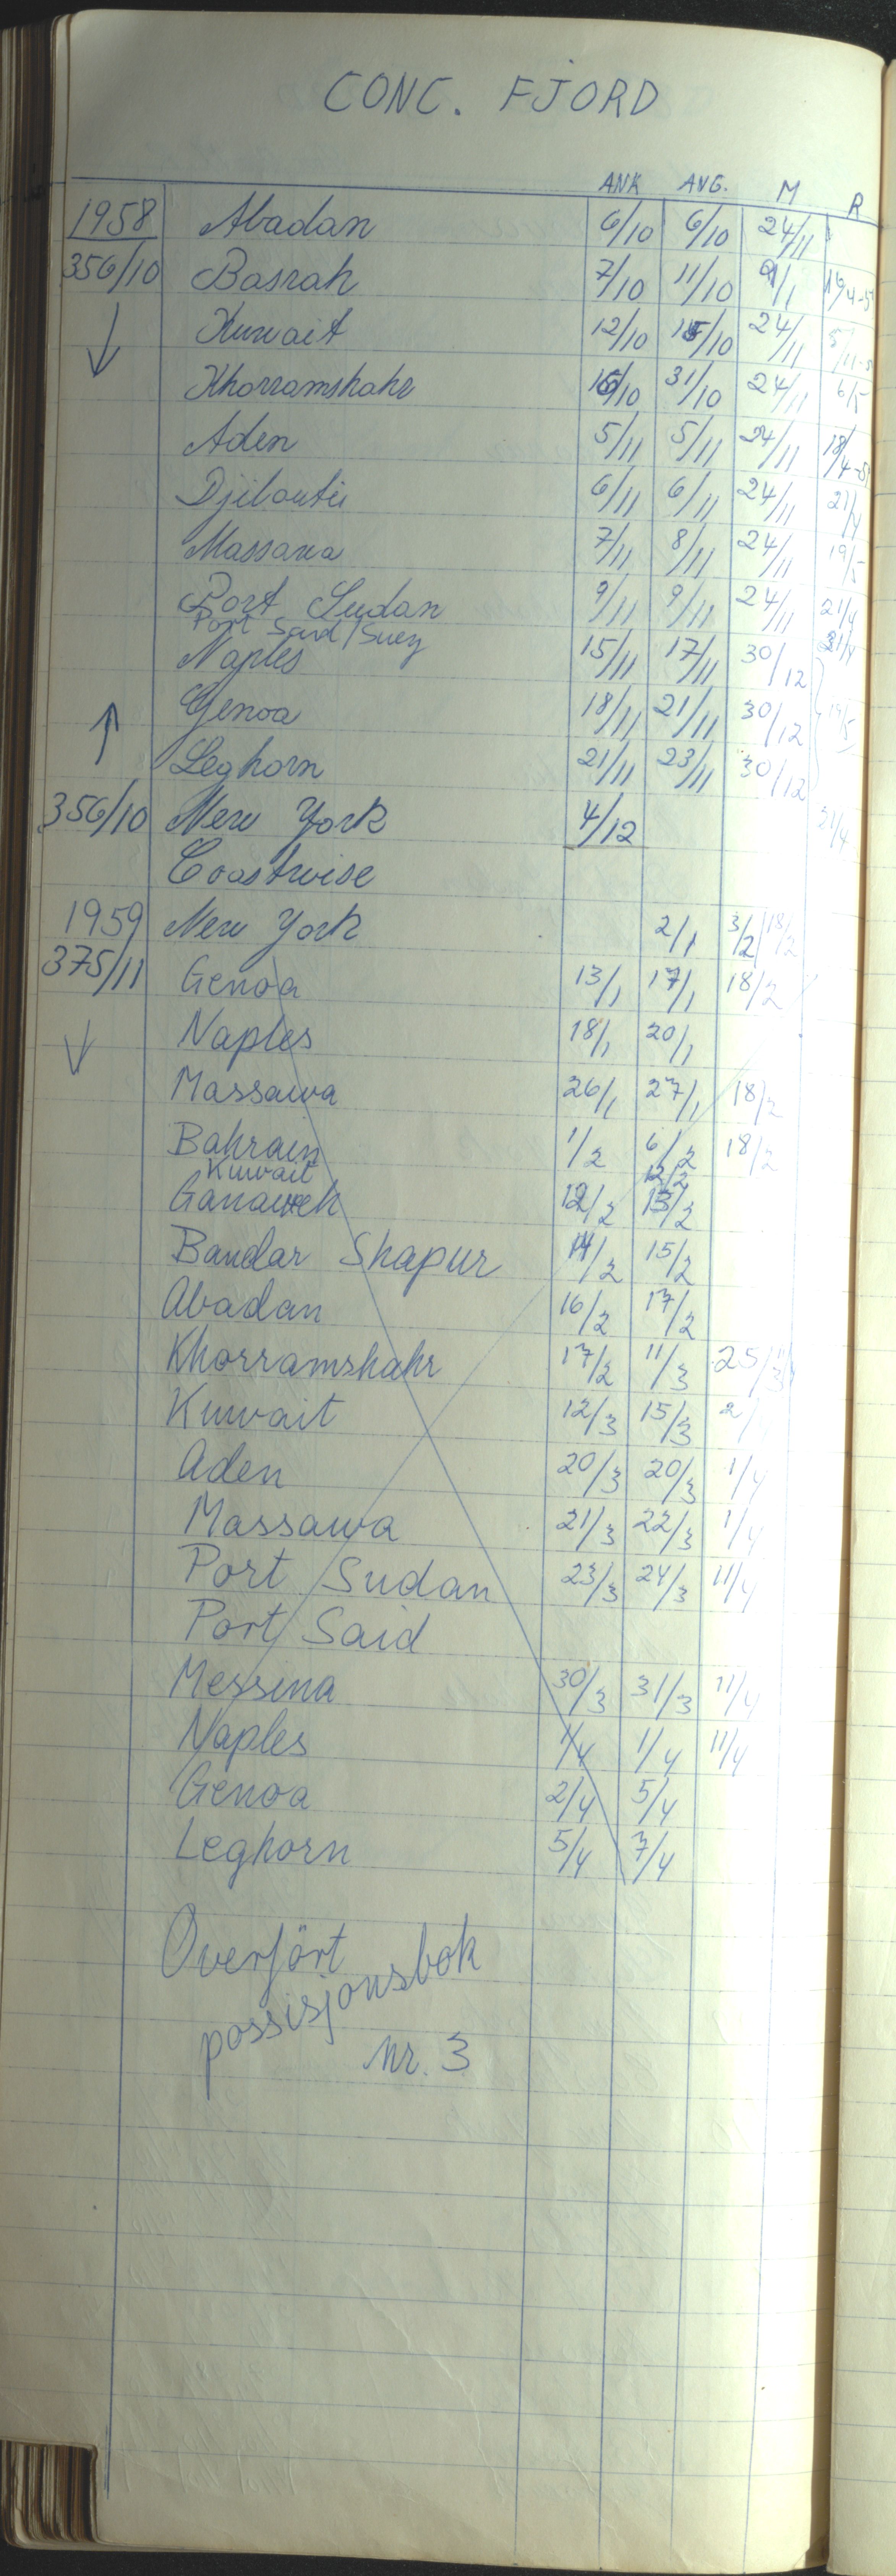 CONC. FJORD
ANK AVG. M R
1958 Abadan 6/10 6/10 24/11
356/10 Basrah 7/10 11/10
Kuwait 12/10 15/10 24/11
Khorramshahr 31/10 24/11 6/5
Aden 5/11 5/11 24/11
Djiboutii 6/11 6/11 24/11 21/4
Massawa 7/11 8/11 24/11 19/5
Port Sudan 9/11 9/11 24/11 21/4
Port Said/Suez 21/4
Naples 15/11 17/11 30/12
Genoa 18/11 21/11 30/12 19/5
Leghorn 21/11 23/11 30/12
356/10 New York 4/12 21/4
Coastwise
1959 New York 2/1 3/2 18/2
375/11 Genoa 13/1 17/1 18/2
Naples 18/1 20/1
Massawa 26/1 27/1 18/2
Bahrain 1/2 6/2 18/2
Kuwait 12/2
Ganaweh 12/2 13/2
Bandar Shapur 14/2 15/2
Abadan 16/2 17/2
Khorramshahr 17/2 11/3 25/3
Kuwait 12/3 15/3
Aden 20/3 20/3 1/4
Massawa 21/3 22/3 1/4
Port Sudan 23/3 24/3 11/4
Port Said
Messina 30/3 31/3 11/4
Naples 1/4 1/4 11/4
Genoa 2/4 5/4
Leghorn 5/4 7/4
Overfört
possisjonsbok
nr. 3